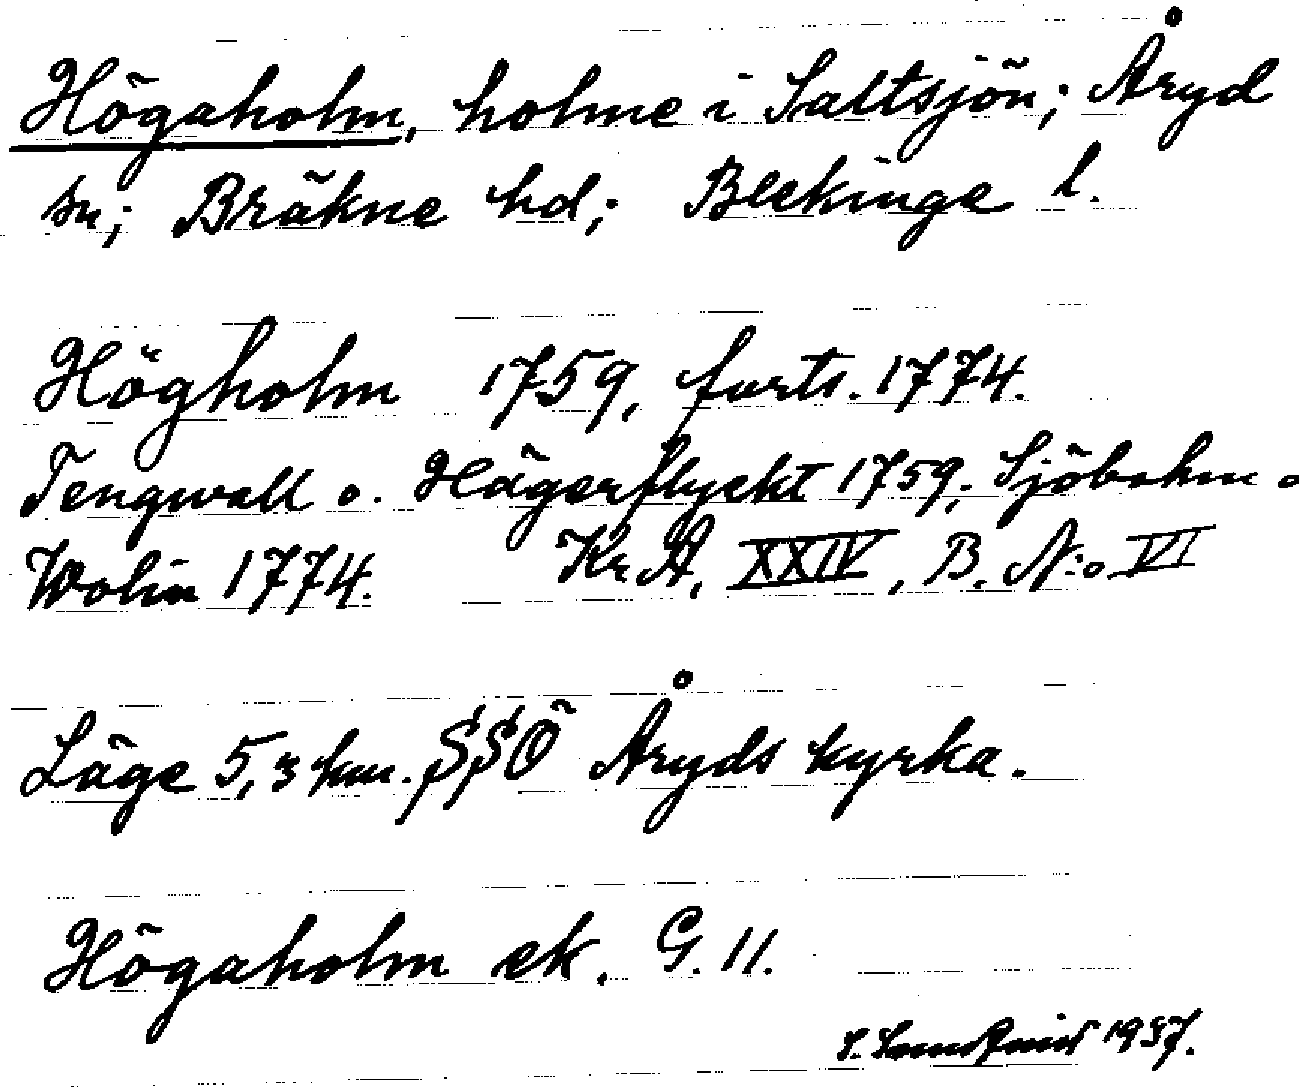 Högaholm, holme i Saltsjön; Åryd
sn; Bräkne hd; Blekinge l.
Högholm 1759, forts. 1774.
Tengwall o. Hägerflyckt 1759; Sjöbohm o
Wolin 1774. Kr.A, XXIV, B. N:o VI
Läge 5,3 km. SSÖ Åryds kyrka.
Högaholm ek. G. 11.
1937.